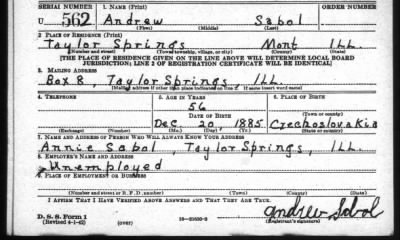 SERIAL NUMBER 1. NAME (Print) ORDER NUMBER
U 562 Andrew Sabol
(First) (Middle) (Last)
2. PLACE OF RESIDENCE (Print)
Taylor Springs Mont ILL.
(Number and street) (Town, township, village, or city) (County) (State)
[THE PLACE OF RESIDENCE GIVEN ON THE LINE ABOVE WILL DETERMINE LOCAL BOARD
JURISDICTION; LINE 2 OF REGISTRATION CERTIFICATE WILL BE IDENTICAL]
3. MAILING ADDRESS
Box 8, Taylor Springs ILL.
[Mailing address if other than place indicated on line 2. If same insert word same]
4. TELEPHONE 5. AGE IN YEARS 6. PLACE OF BIRTH
56
DATE OF BIRTH (Town or county)
Dec. 20, 1885 Czechoslovakia
(Exchange) (Number) (Mo.) (Day) (Yr.) (State or country)
7. NAME AND ADDRESS OF PERSON WHO WILL ALWAYS KNOW YOUR ADDRESS
Annie Sabol Taylor Springs, ILL.
8. EMPLOYER'S NAME AND ADDRESS
Unemployed
9. PLACE OF EMPLOYMENT OR BUSINESS
(Number and street or R. F. D. number) (Town) (County) (State)
I AFFIRM THAT I HAVE VERIFIED ABOVE ANSWERS AND THAT THEY ARE TRUE.
D. S. S. Form 1
(Revised 4-1-42) (over) Andrew Sabol
(Registrant's signature)